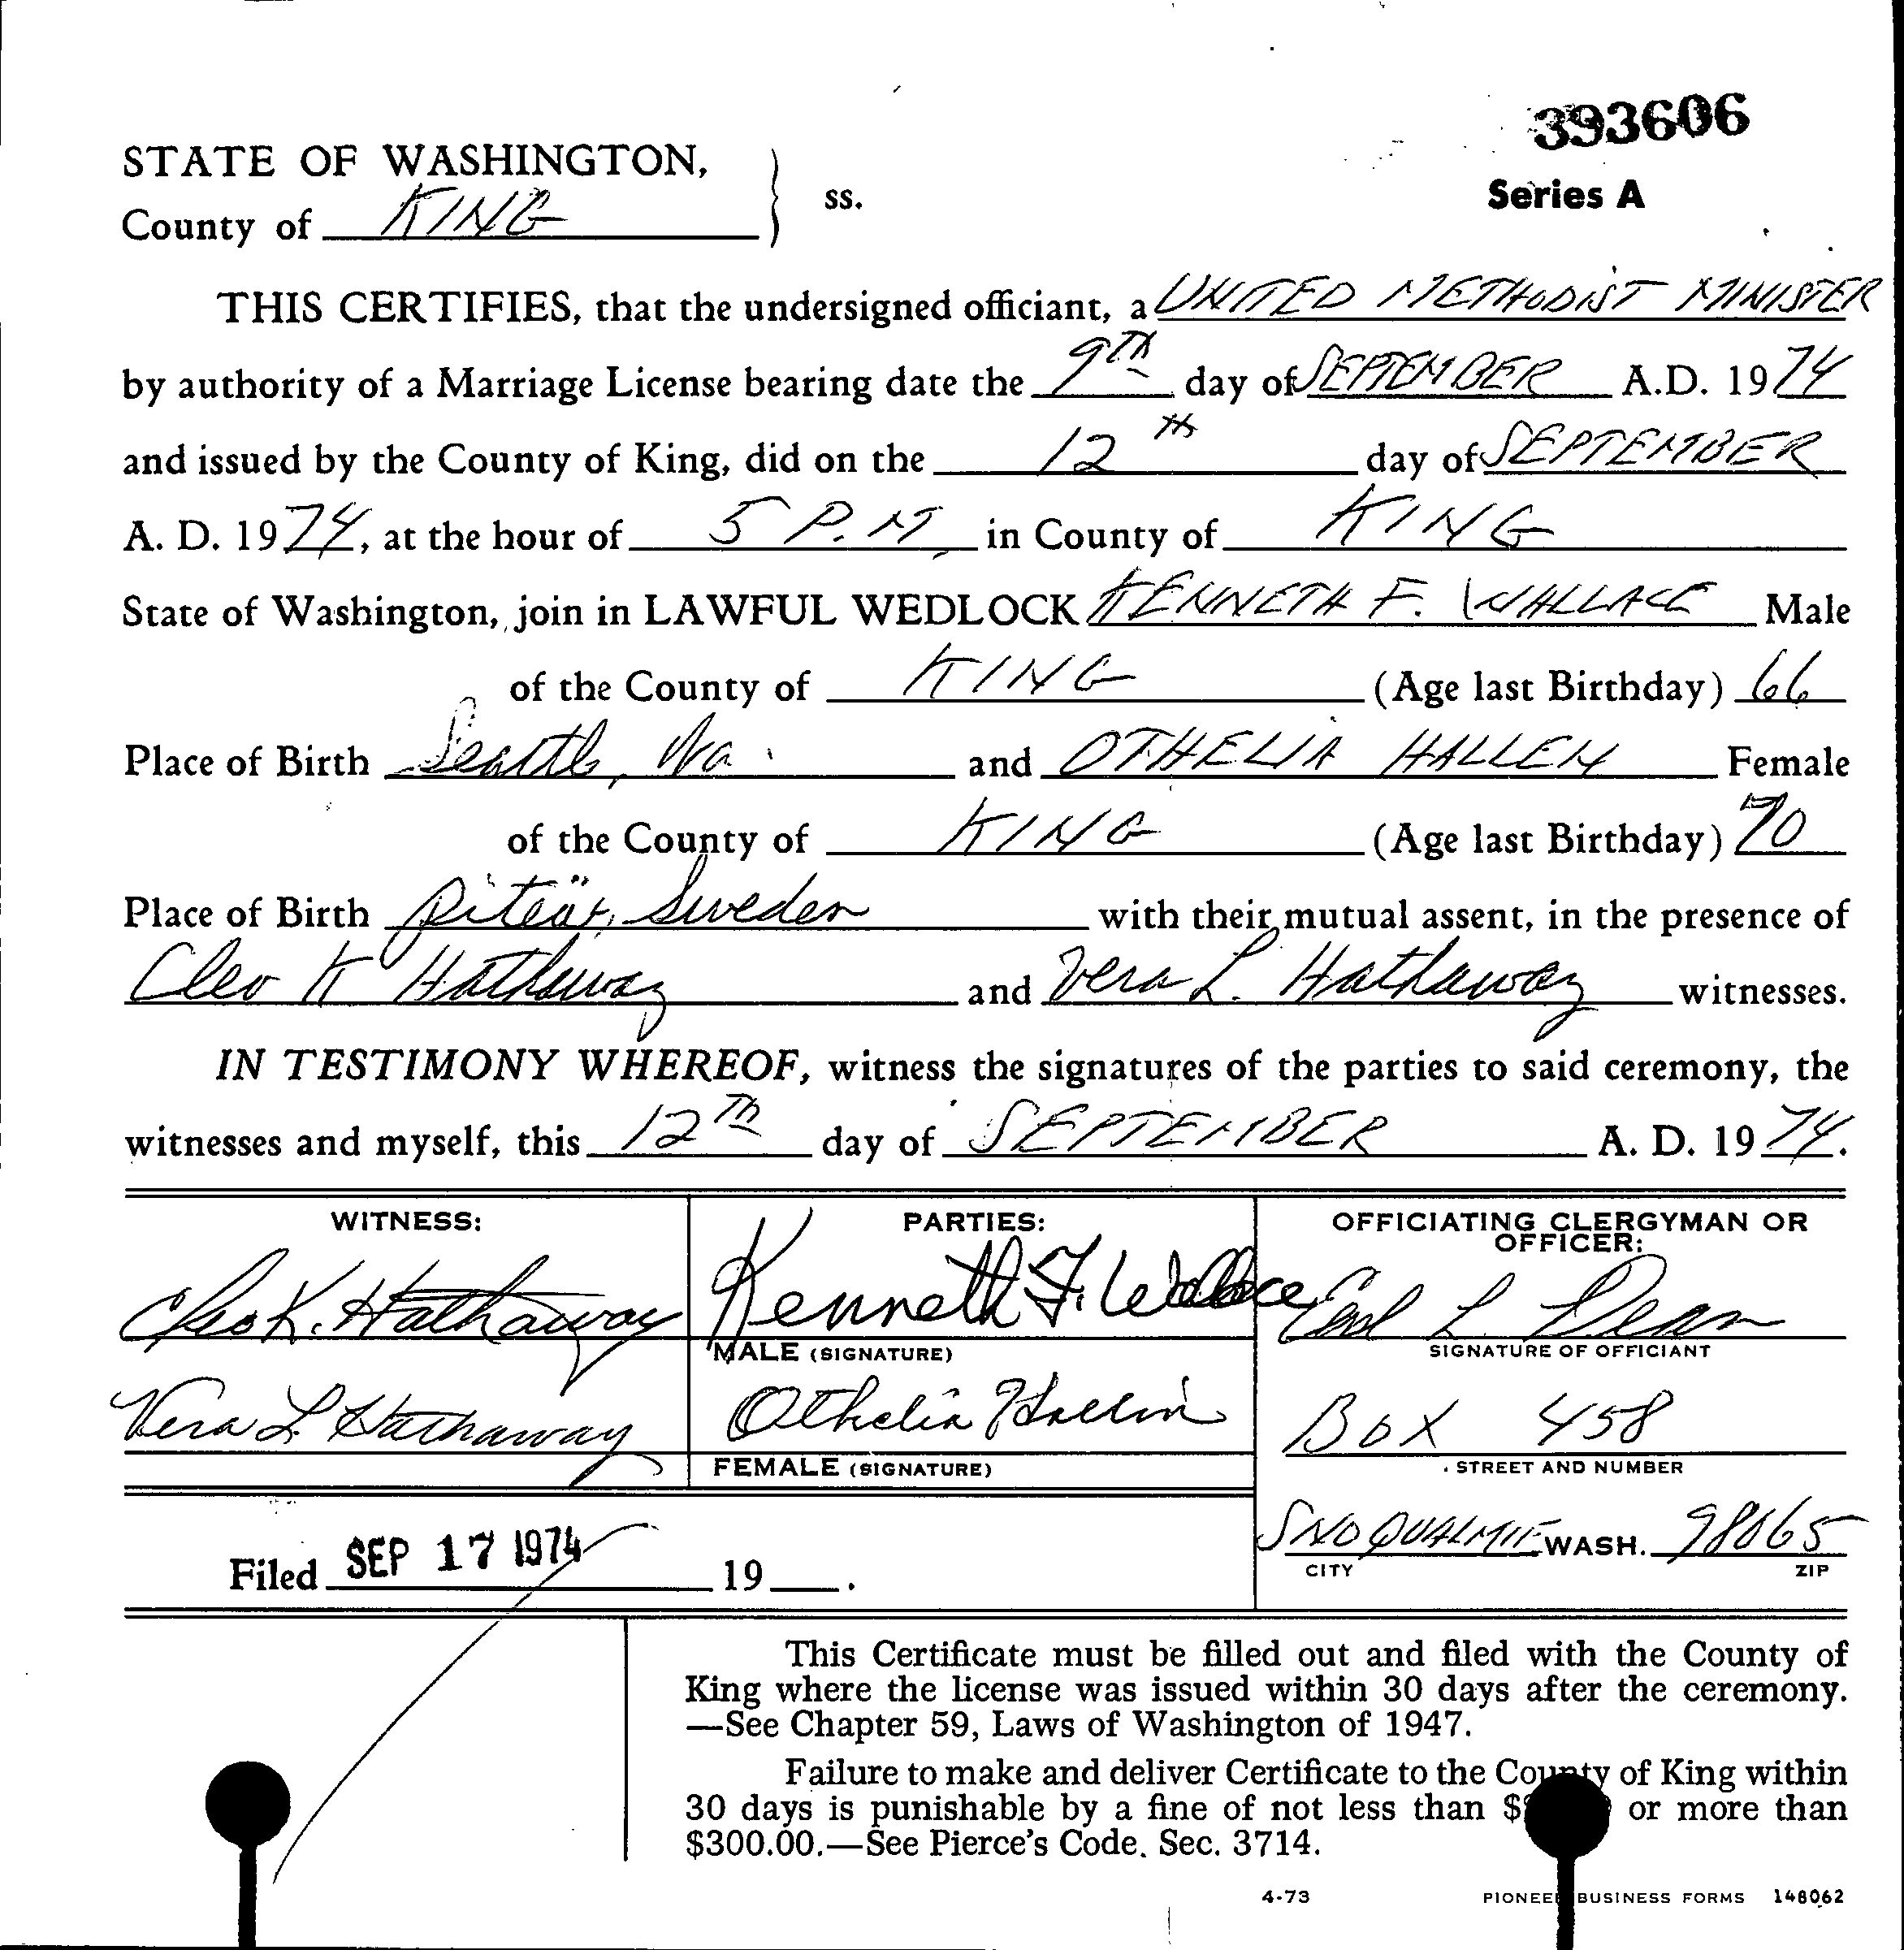 393606
Series A
STATE OF WASHINGTON,
County of KING } ss.
THIS CERTIFIES, that the undersigned officiant, a UNITED METHODIST MINISTER
by authority of a Marriage License bearing date the 9TH day of SEPTEMBER A.D. 1974
and issued by the County of King, did on the 12th day of SEPTEMBER
A. D. 1974, at the hour of 5 P.M. in County of KING
State of Washington, join in LAWFUL WEDLOCK KENNETH F. WALLACE Male
of the County of KING (Age last Birthday) 66
Place of Birth Seattle, Wa. and OTHELIA HALLEN Female
of the County of KING (Age last Birthday) 70
Place of Birth Sweden with their mutual assent, in the presence of
Cleo K Hathaway and Vera L. Hathaway witnesses.
IN TESTIMONY WHEREOF, witness the signatures of the parties to said ceremony, the
witnesses and myself, this 12TH day of SEPTEMBER A. D. 1974.
WITNESS:
Cleo K. Hathaway
Vera L. Hathaway
PARTIES:
Kenneth F. Wallace
MALE (SIGNATURE)
Othelia
FEMALE (SIGNATURE)
OFFICIATING CLERGYMAN OR
OFFICER:
Earl L. Dean
SIGNATURE OF OFFICIANT
BOX 458
STREET AND NUMBER
SNOQUALMIE WASH. 98065
CITY ZIP
Filed SEP 17 1974 19 .
This Certificate must be filled out and filed with the County of
King where the license was issued within 30 days after the ceremony.
—See Chapter 59, Laws of Washington of 1947.
Failure to make and deliver Certificate to the County of King within
30 days is punishable by a fine of not less than $ or more than
$300.00.—See Pierce's Code, Sec. 3714.
4-73
PIONEER BUSINESS FORMS 148062